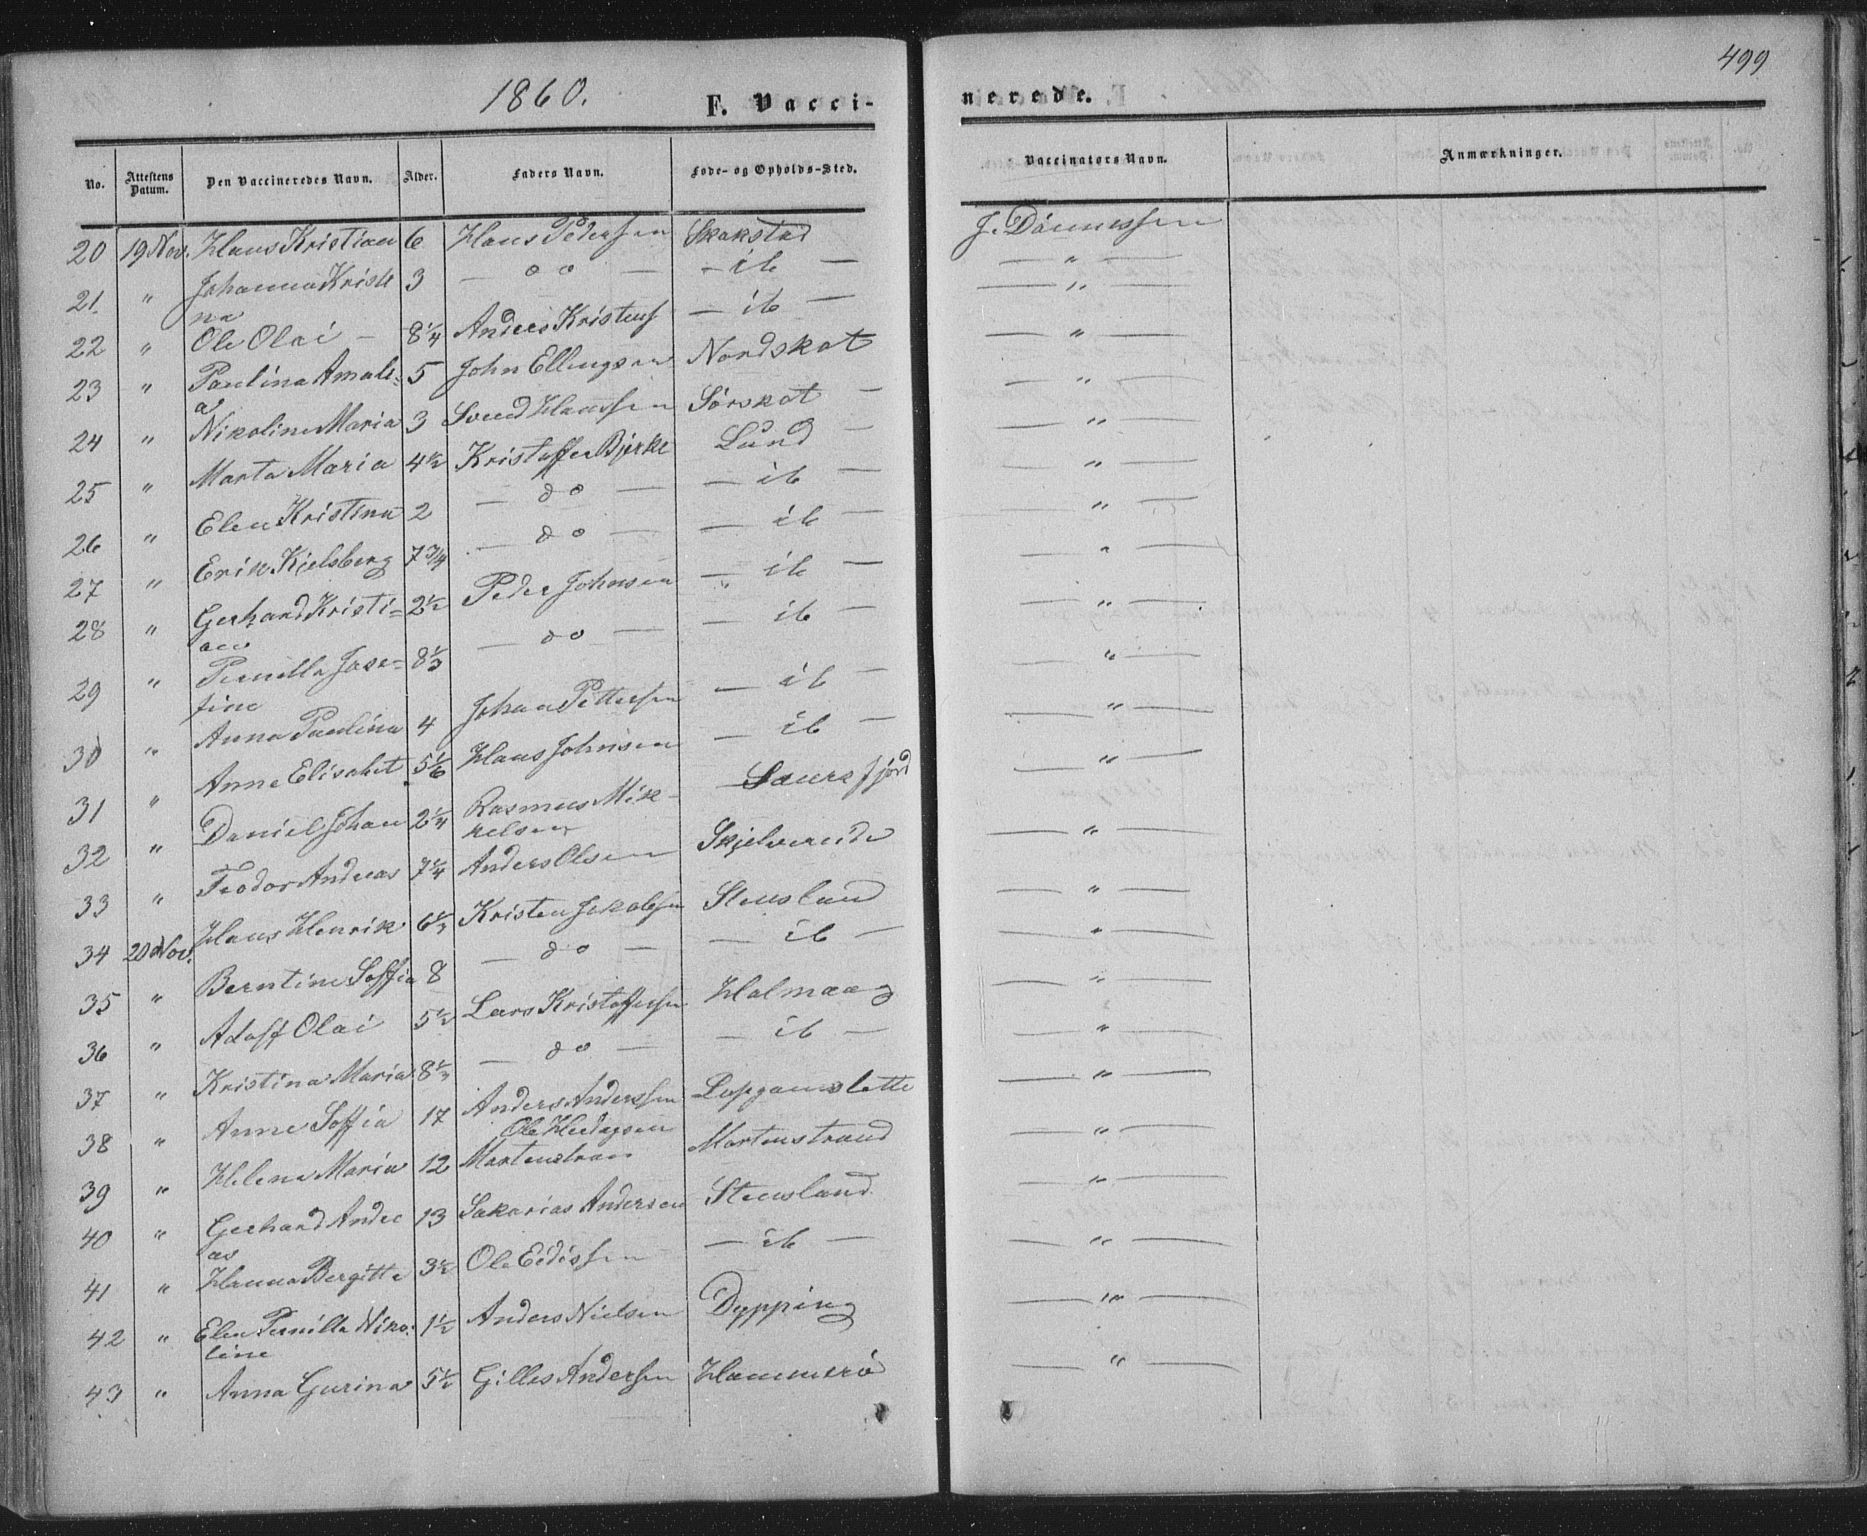 499
1860.
F. Vacci-
nerede.
No. Attestens Datum. Den Vaccineredes Navn. Alder. Faders Navn. Føde- og Opholds-Sted. Vaccinators Navn. Anmærkninger.
20 19 Nov. Hans Kristian 6 Hans Pedersen Skakstad J. Dönnessen
21 " Johanna Kriste 3 — do — — ib — — " —
na
22 " Ole Olai — 8 1/4 Anders Kristens — ib — — " —
23 " Paulina Amali= 5 John Ellingsen Nordskot — " —
a
24 " Nikoline Maria 3 Svend Hanssen Sörskot — — " —
25 " Marta Maria 4 1/2 Kristoffer Bjerke Lund — — " —
26 " Elen Kristina 2 — do — — ib — — " —
27 " Erik Kjelsberg 7 3/4 — do — — ib — — " —
28 " Gerhard Kristi= 2 1/2 Peder Johnsen — ib — — " —
an
29 " Pernilla Jose= 8 1/3 — do — — ib — — " —
fine
30 " Anna Paulina 4 Johan Pettersen — ib — — " —
31 " Anne Elisabet 5 1/6 Hans Johnsen — ib — — " —
32 " Daniel Johan 2 1/4 Rasmus Mik- Saursfjord — " —
kelsen
33 " Teodor Andreas 7 1/4 Anders Olsen Skjelvereide — " —
34 20 Nov. Hans Henrik 6 1/3 Kristen Jakobsen Stensland — " —
35 " Berntine Soffia 8 — do — — ib — — " —
36 " Adolf Olai 5 1/2 Lars Kristoffersen Holmaag — " —
37 " Kristina Maria 8 1/3 — do — — ib — — " —
38 " Anne Soffia 17 Anders Anderssen — " —
Ole
39 " Helene Maria 12 Martenstran Martenstrand — " —
40 " Gerhard Andre 13 Sakarias Andersen Stensland — " —
as
41 " Hanna Bergitte 3 1/2 Ole Eidissen — ib — — " —
42 " Elen Pernilla Niko: 1 1/2 Anders Nielsen Dypping — " —
line
43 " Anna Gurina 5 1/2 Gilles Andersen Hammerö — " —